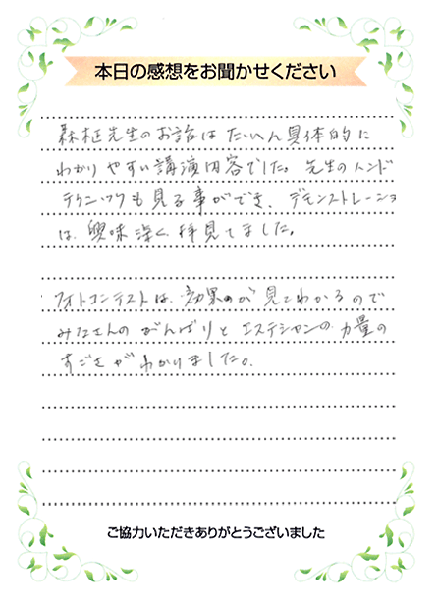 本日の感想をお聞かせください
先生のお話はたいへん具体的に
わかりやすい講演内容でした。先生のハンド
テクニックも見る事ができ、デモンストレーション
は、興味深く拝見してました。
フォトコンテストは、効果のが見てわかるので
みなさんのがんばりとエステシャンの力量の
すごさがわかりました。
ご協力いただきありがとうございました